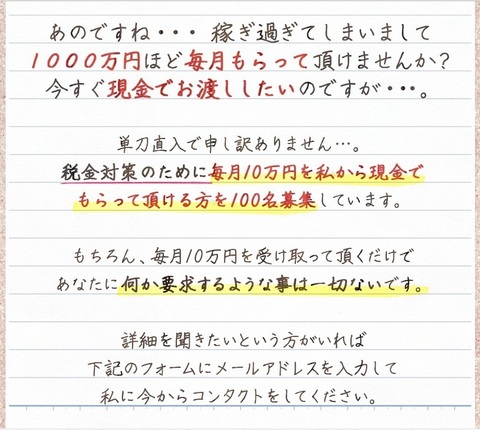 あのですね・・・ 稼ぎ過ぎてしまいまして
1000万円ほど毎月もらって頂けませんか?
今すぐ現金でお渡ししたいのですが・・・。
単刀直入で申し訳ありません…。
税金対策のために毎月10万円を私から現金で
もらって頂ける方を100名募集しています。
もちろん、毎月10万円を受け取って頂くだけで
あなたに何か要求するような事は一切ないです。
詳細を聞きたいという方がいれば
下記のフォームにメールアドレスを入力して
私に今からコンタクトをしてください。